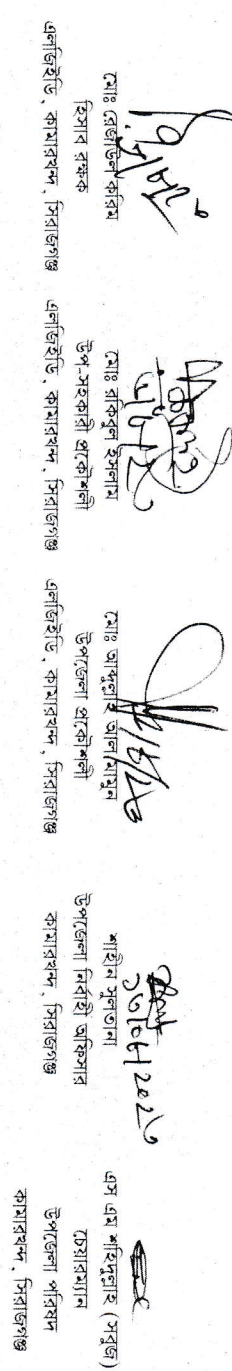 মোঃ রেজাউল করিম
হিসাব রক্ষক
এলজিইডি, কামারখন্দ, সিরাজগঞ্জ
মোঃ রাকিবুল ইসলাম
উপ-সহকারী প্রকৌশলী
এলজিইডি, কামারখন্দ, সিরাজগঞ্জ
মোঃ আব্দুল্লাহ আল মামুন
উপজেলা প্রকৌশলী
এলজিইডি, কামারখন্দ, সিরাজগঞ্জ
শাহীন সুলতানা
উপজেলা নির্বাহী অফিসার
কামারখন্দ, সিরাজগঞ্জ
এস এম শহিদুল্লাহ (সবুজ)
চেয়ারম্যান
উপজেলা পরিষদ
কামারখন্দ, সিরাজগঞ্জ